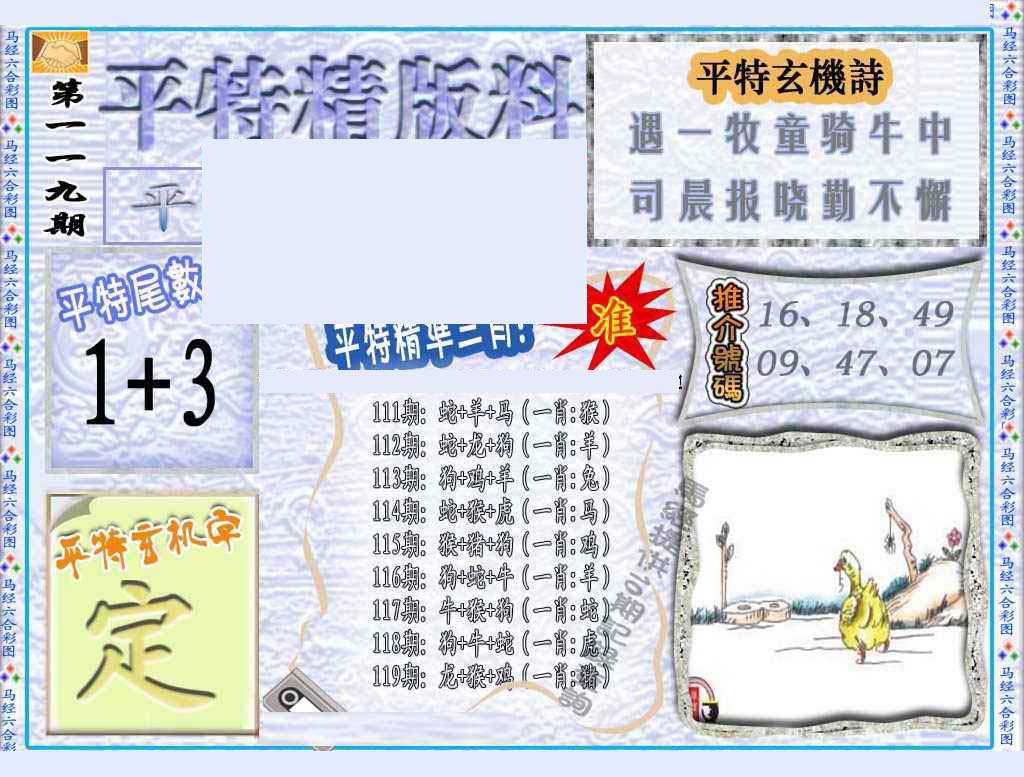 马经六合彩图
马经六合彩图
马经六合彩图
马经六合彩图
马经六合彩图
马经六合彩图
马经六合彩
第一一九期
平特精版料
平
平特玄機詩
遇一牧童骑牛中
司晨报晓勤不懈
平特尾數
1+3
平特精準三肖!
准
推介號碼
16、18、49
09、47、07
111期: 蛇+羊+马(一肖:猴)
112期: 蛇+龙+狗(一肖:羊)
113期: 狗+鸡+羊(一肖:兔)
114期: 蛇+猴+虎(一肖:马)
115期: 猴+猪+狗(一肖:鸡)
116期: 狗+蛇+牛(一肖:羊)
117期: 牛+猴+狗(一肖:蛇)
118期: 狗+牛+蛇(一肖:虎)
119期: 龙+猴+鸡(一肖:猪)
平特玄机字
定
马经六合彩图
马经六合彩图
马经六合彩图
马经六合彩图
马经六合彩图
马经六合彩图
马经六合彩图